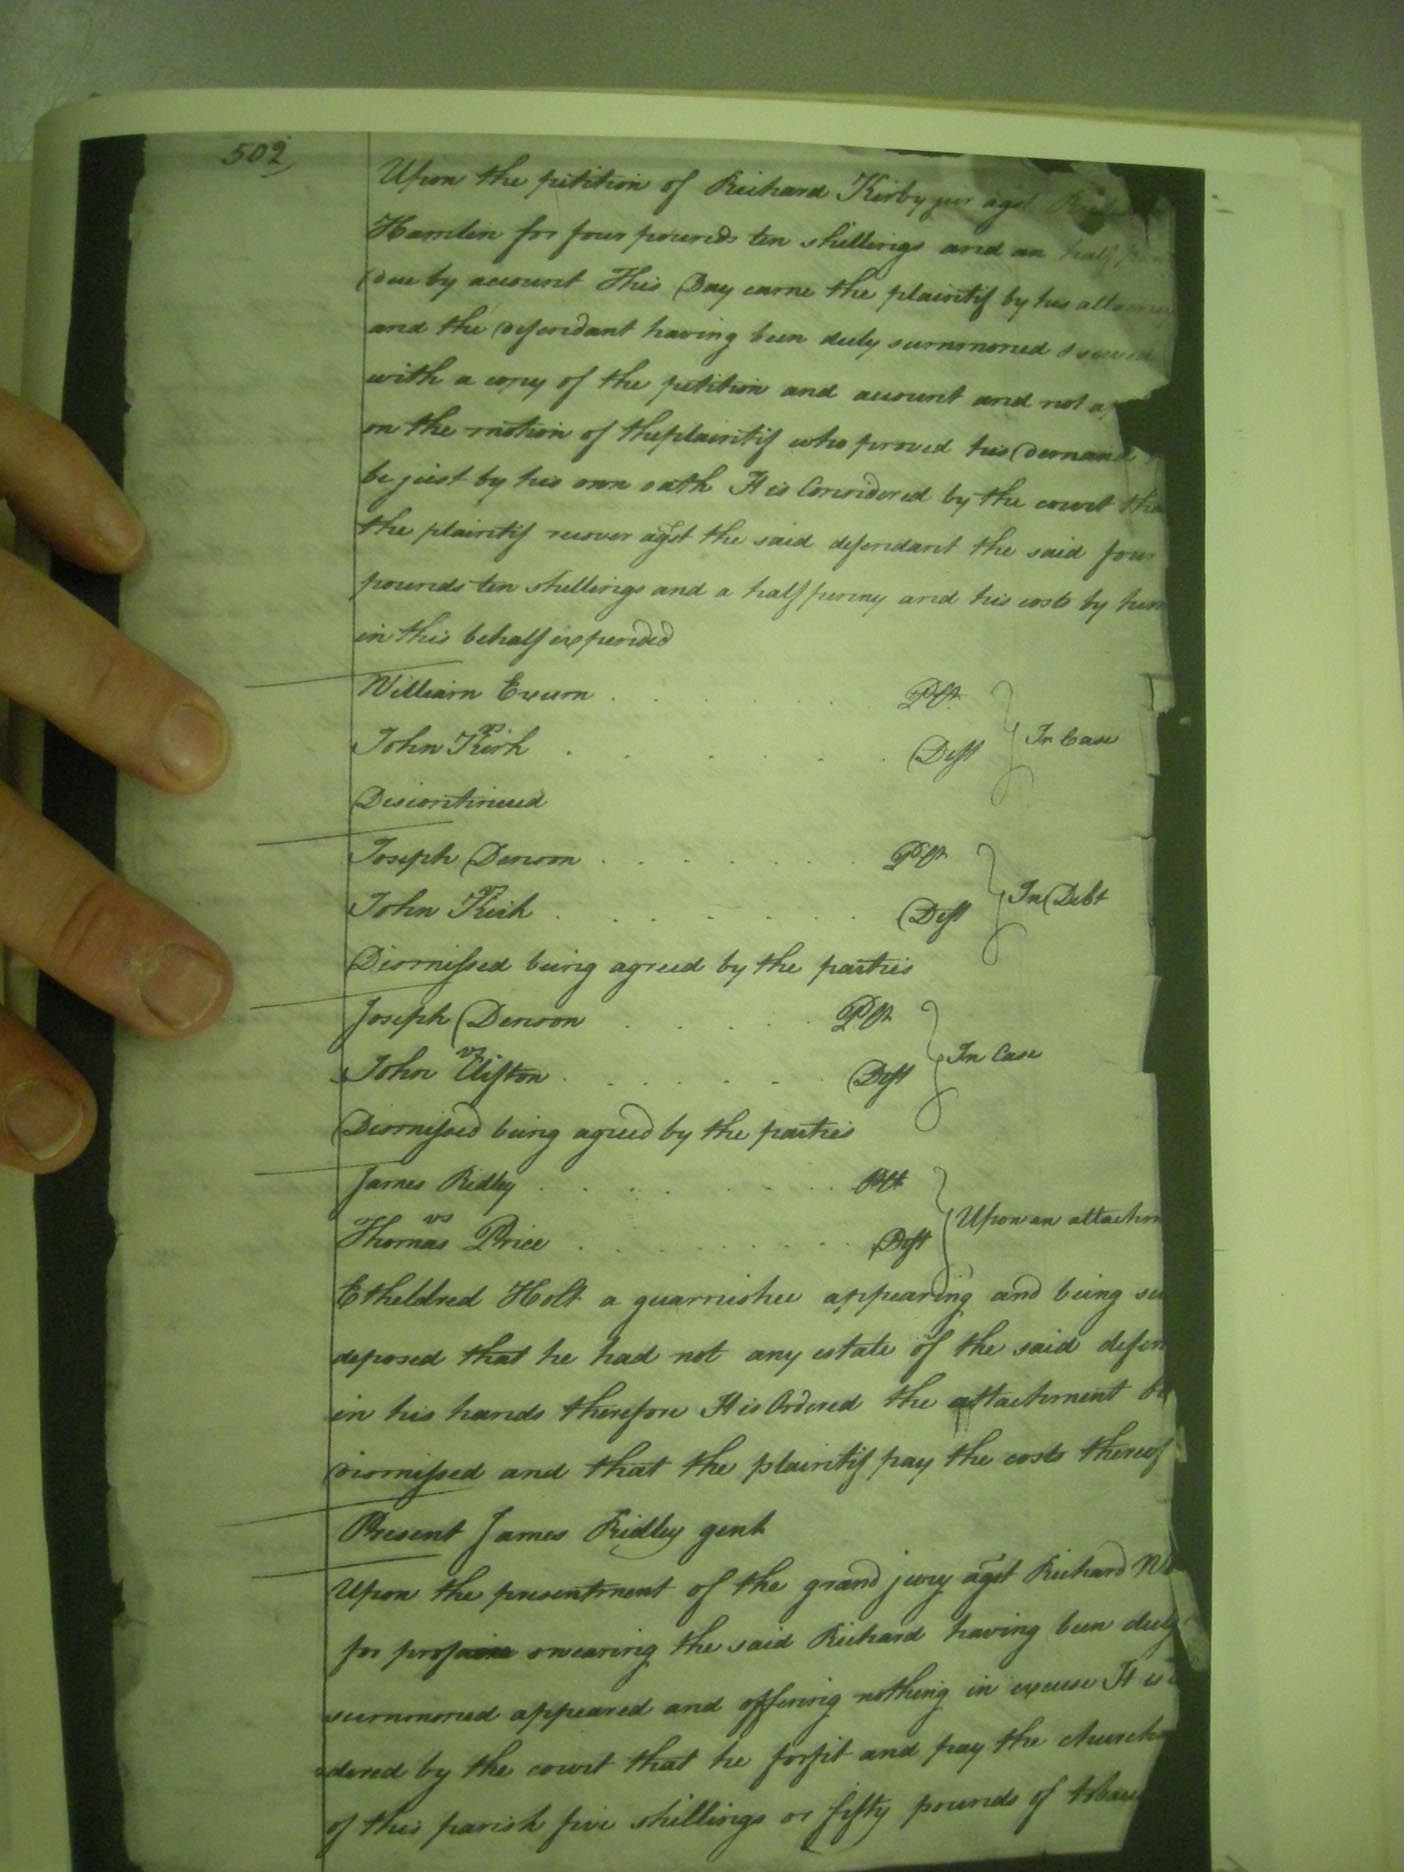 502
Upon the petition of Richard Kirby jur agst
Hamlin for four pounds ten shillings and an half
due by account This Day came the plaintif by his attorney
and the defendant having been duly summoned & served
with a copy of the petition and account and not
on the motion of the plaintif who proved his demand
be just by his own oath It is Considered by the court tha
the plaintif recover agst the said defendant the said four
pounds ten shillings and a half penny and his costs by him
in this behalf expended
William Exum Plt
vs
John Kirk Deft In Case
Discontinued
Joseph Denson Plt
vs
John Kirk Deft In Debt
Dismissed being agreed by the parties
Joseph Denson Plt
vs
John Clifton Deft In Case
Dismissed being agreed by the parties
James Ridley Plt
vs
Thomas Price Deft Upon an attachm
Etheldred Holt a guarnishee appearing and being
deposed that he had not any estate of the said defen
in his hands therefore It is Ordered the attachment be
dismissed and that the plaintif pay the costs thereof
Present James Ridley gent
Upon the presentment of the grand jury agst Richard
for profaine swearing the said Richard having been duly
summoned appeared and offering nothing in excuse It is
dered by the court that he forfit and pay the church
of this parish five shillings or fifty pounds of tobacc